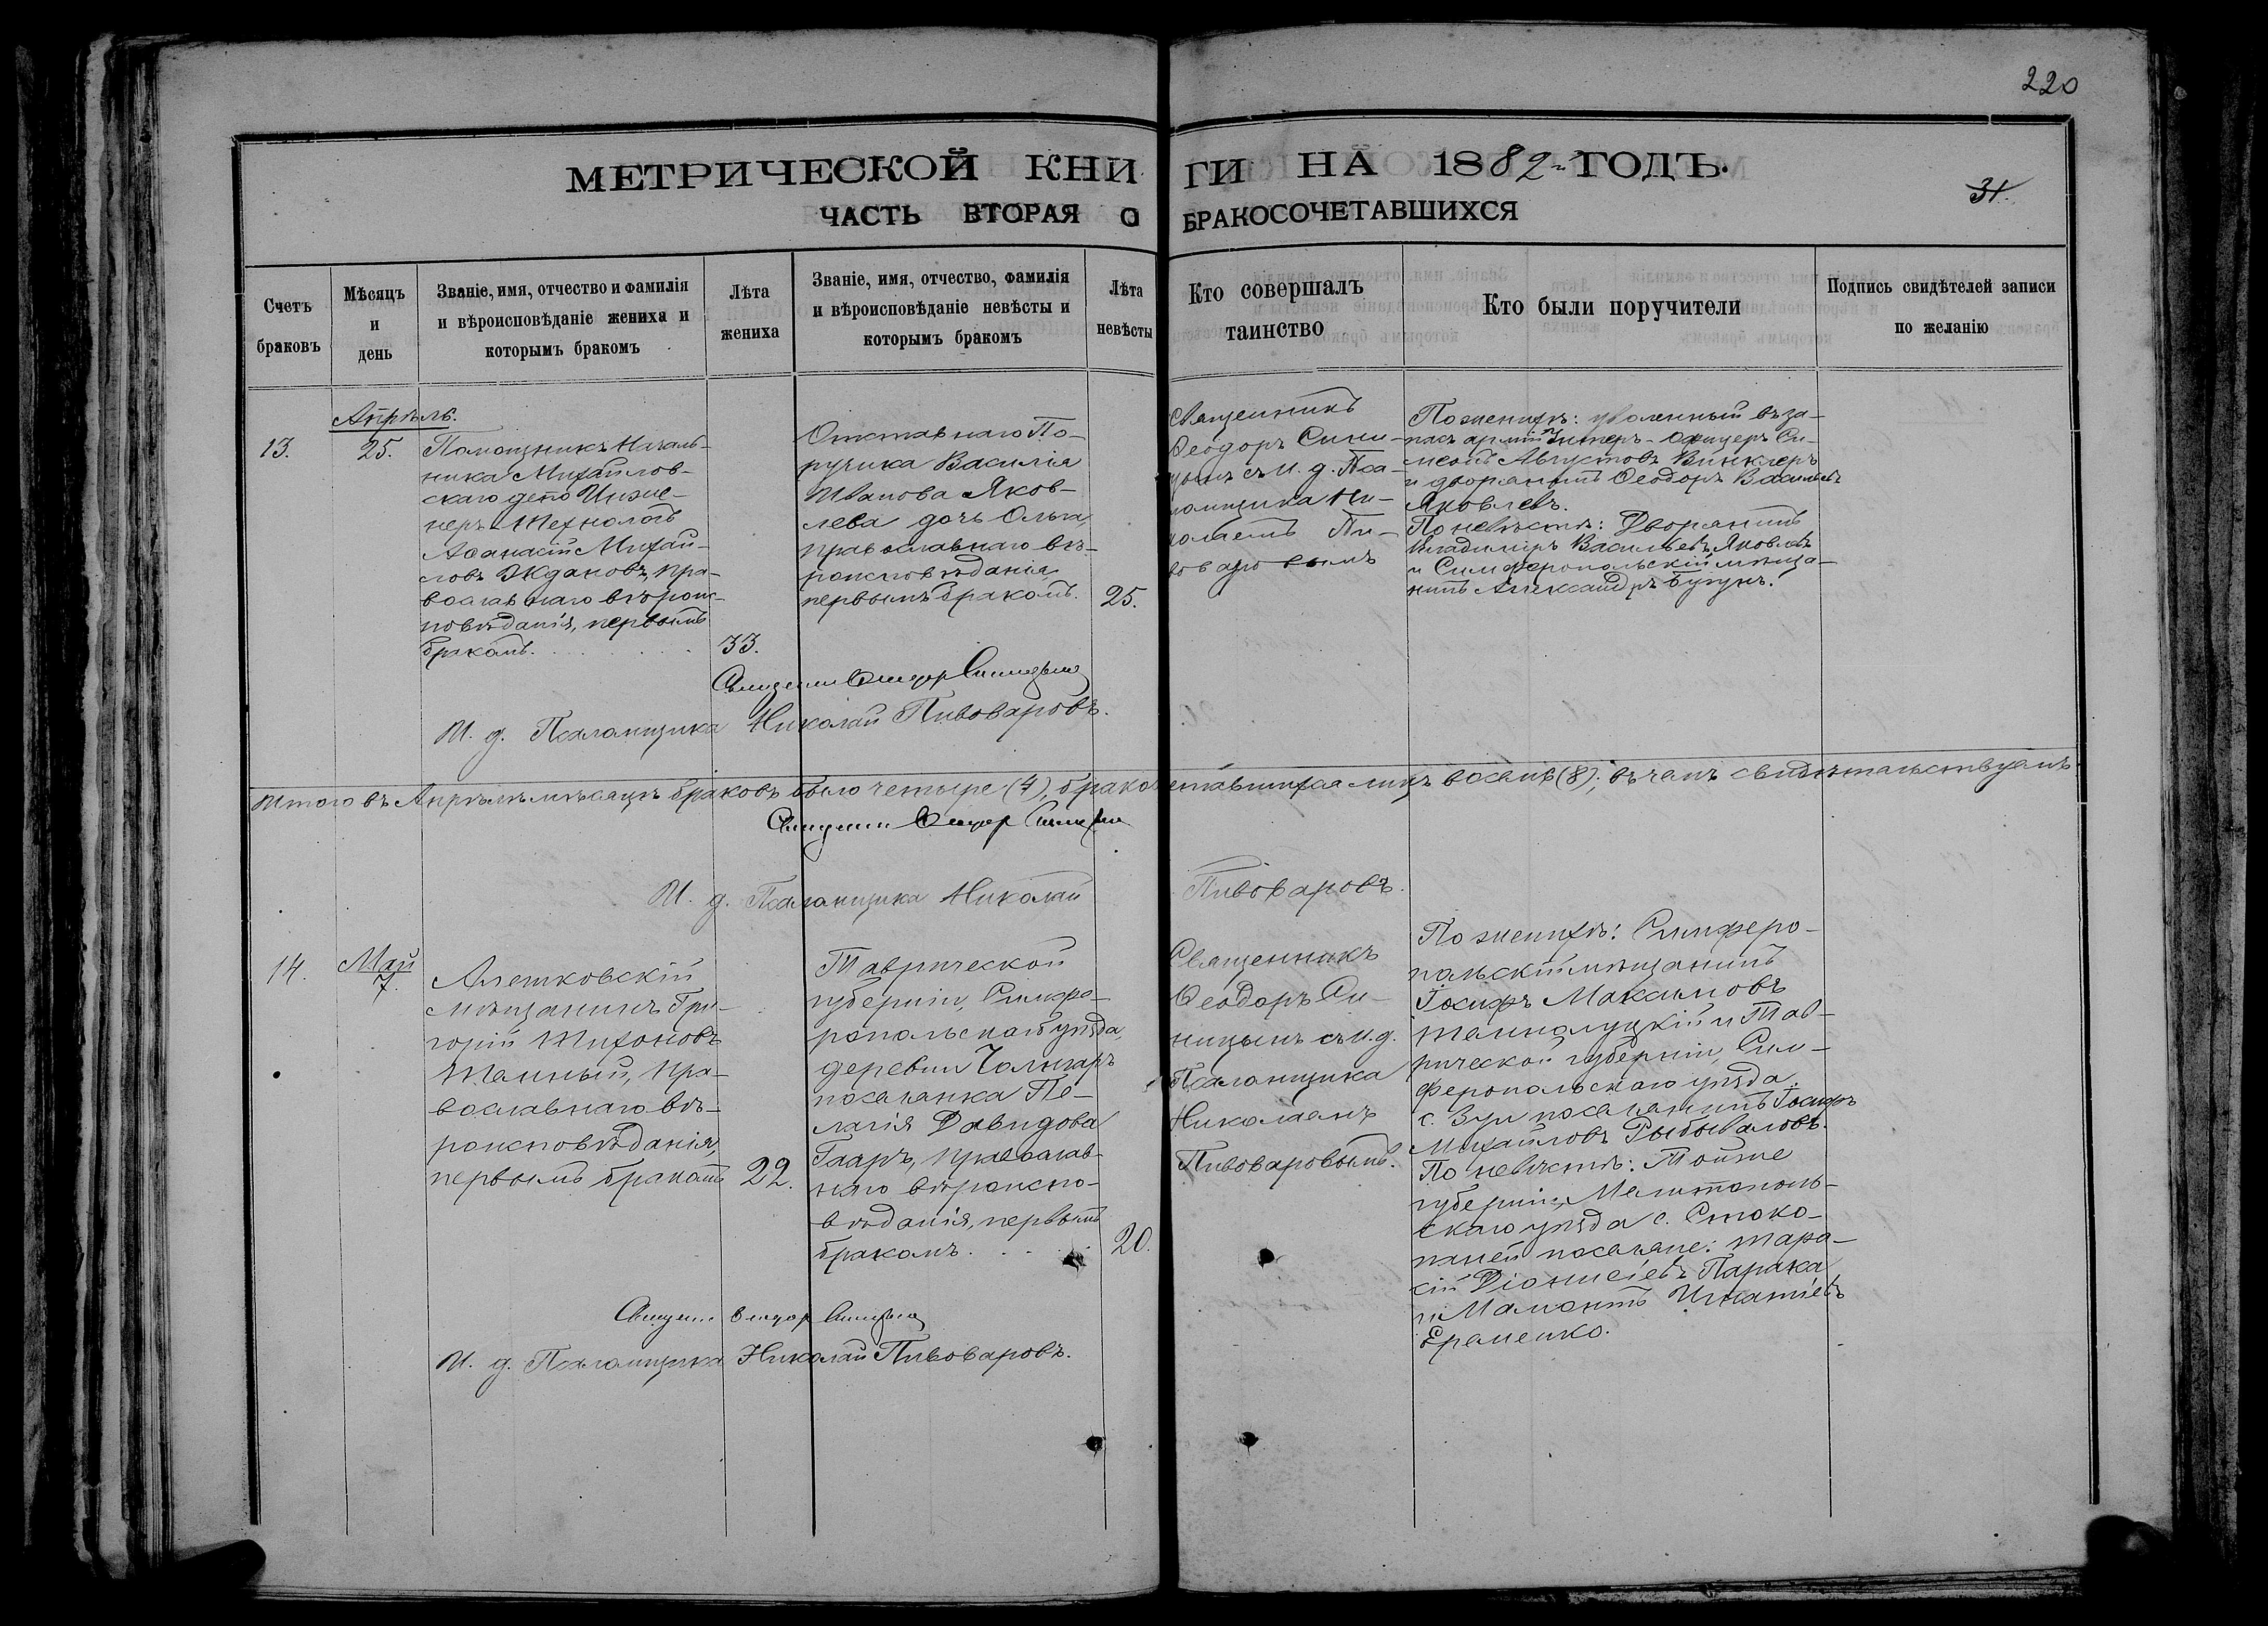 220
МЕТРИЧЕСКОЙ КНИГИ НА 1882й ГОДЪ.
31.
ЧАСТЬ ВТОРАЯ О БРАКОСОЧЕТАВШИХСЯ
Счетъ
браковъ
Мѣсяцъ
и
день
Званіе, имя, отчество и фамилія
и вѣроисповѣданіе жениха и
которымъ бракомъ
Лѣта
жениха
Званіе, имя, отчество, фамилія
и вѣроисповѣданіе невѣсты и
которымъ бракомъ
Лѣта
невѣсты
Кто совершалъ
таинство
Кто были поручители
Подпись свидѣтелей записи
по желанію
Апрѣль.
13.
25.
Помощникъ Началь-
ника Михайлов-
скаго депо Инже-
неръ-Технологъ
Аѳанасій Михай-
ловъ Ждановъ, пра-
вославнаго вѣроис-
повѣданія, первымъ
бракомъ.
33.
Отставнаго По-
ручика Василія
Иванова Яков-
лева дочь Ольга,
православнаго вѣ-
роисповѣданія,
первымъ бракомъ.
25.
Священникъ
Ѳеодоръ Сини-
цынъ съ И. д. Пса-
ломщика Ни-
колаемъ Пи-
воваровымъ
По женихѣ: уволенный въ за-
пасъ арміи Унтеръ-Офицеръ Си-
меонъ Августовъ Винклеръ
и дворянинъ Ѳеодоръ Васильевъ
Яковлевъ.
По невѣстѣ: Дворянинъ
Владиміръ Васильевъ Яковлевъ
и Симферопольскій мѣща-
нинъ Александръ Бугунъ.
Священникъ Ѳеодоръ Синицынъ
И. д. Псаломщика Николай Пивоваровъ.
Итого въ Апрѣлѣ мѣсяцѣ браковъ было четыре (4), бракосочетавшихся лицъ восемь (8); въ чемъ свидѣтельствуемъ
Священникъ Ѳеодоръ Синицынъ
И. д. Псаломщика Николай Пивоваровъ.
14.
Май
7.
Алешковскій
мѣщанинъ Гри-
горій Тихоновъ
Темный, пра-
вославнаго вѣ-
роисповѣданія,
первымъ бракомъ
22.
Таврической
губерніи, Симфе-
ропольскаго уѣзда,
деревни Чонгаръ
поселянка Пе-
лагія Давидова
Гааръ, православ-
наго вѣроиспо-
вѣданія, первымъ
бракомъ.
20.
Священникъ
Ѳеодоръ Си-
ницынъ съ И. д.
Псаломщика
Николаемъ
Пивоваровымъ.
По женихѣ: Симферо-
польскій мѣщанинъ
Іосифъ Максимовъ
и Тав-
рической губерніи, Сим-
феропольскаго уѣзда
с. Зуи поселянинъ Іосифъ
Михайловъ Рыбываловъ.
По невѣстѣ: Тойже
губерніи, Мелитополь-
скаго уѣзда с. Стоко-
паней поселяне: Тара-
сій Діонисіевъ Парака
и Мамонтъ Игнатіевъ
Еременко.
Священникъ Ѳеодоръ Синицынъ
И. д. Псаломщика Николай Пивоваровъ.